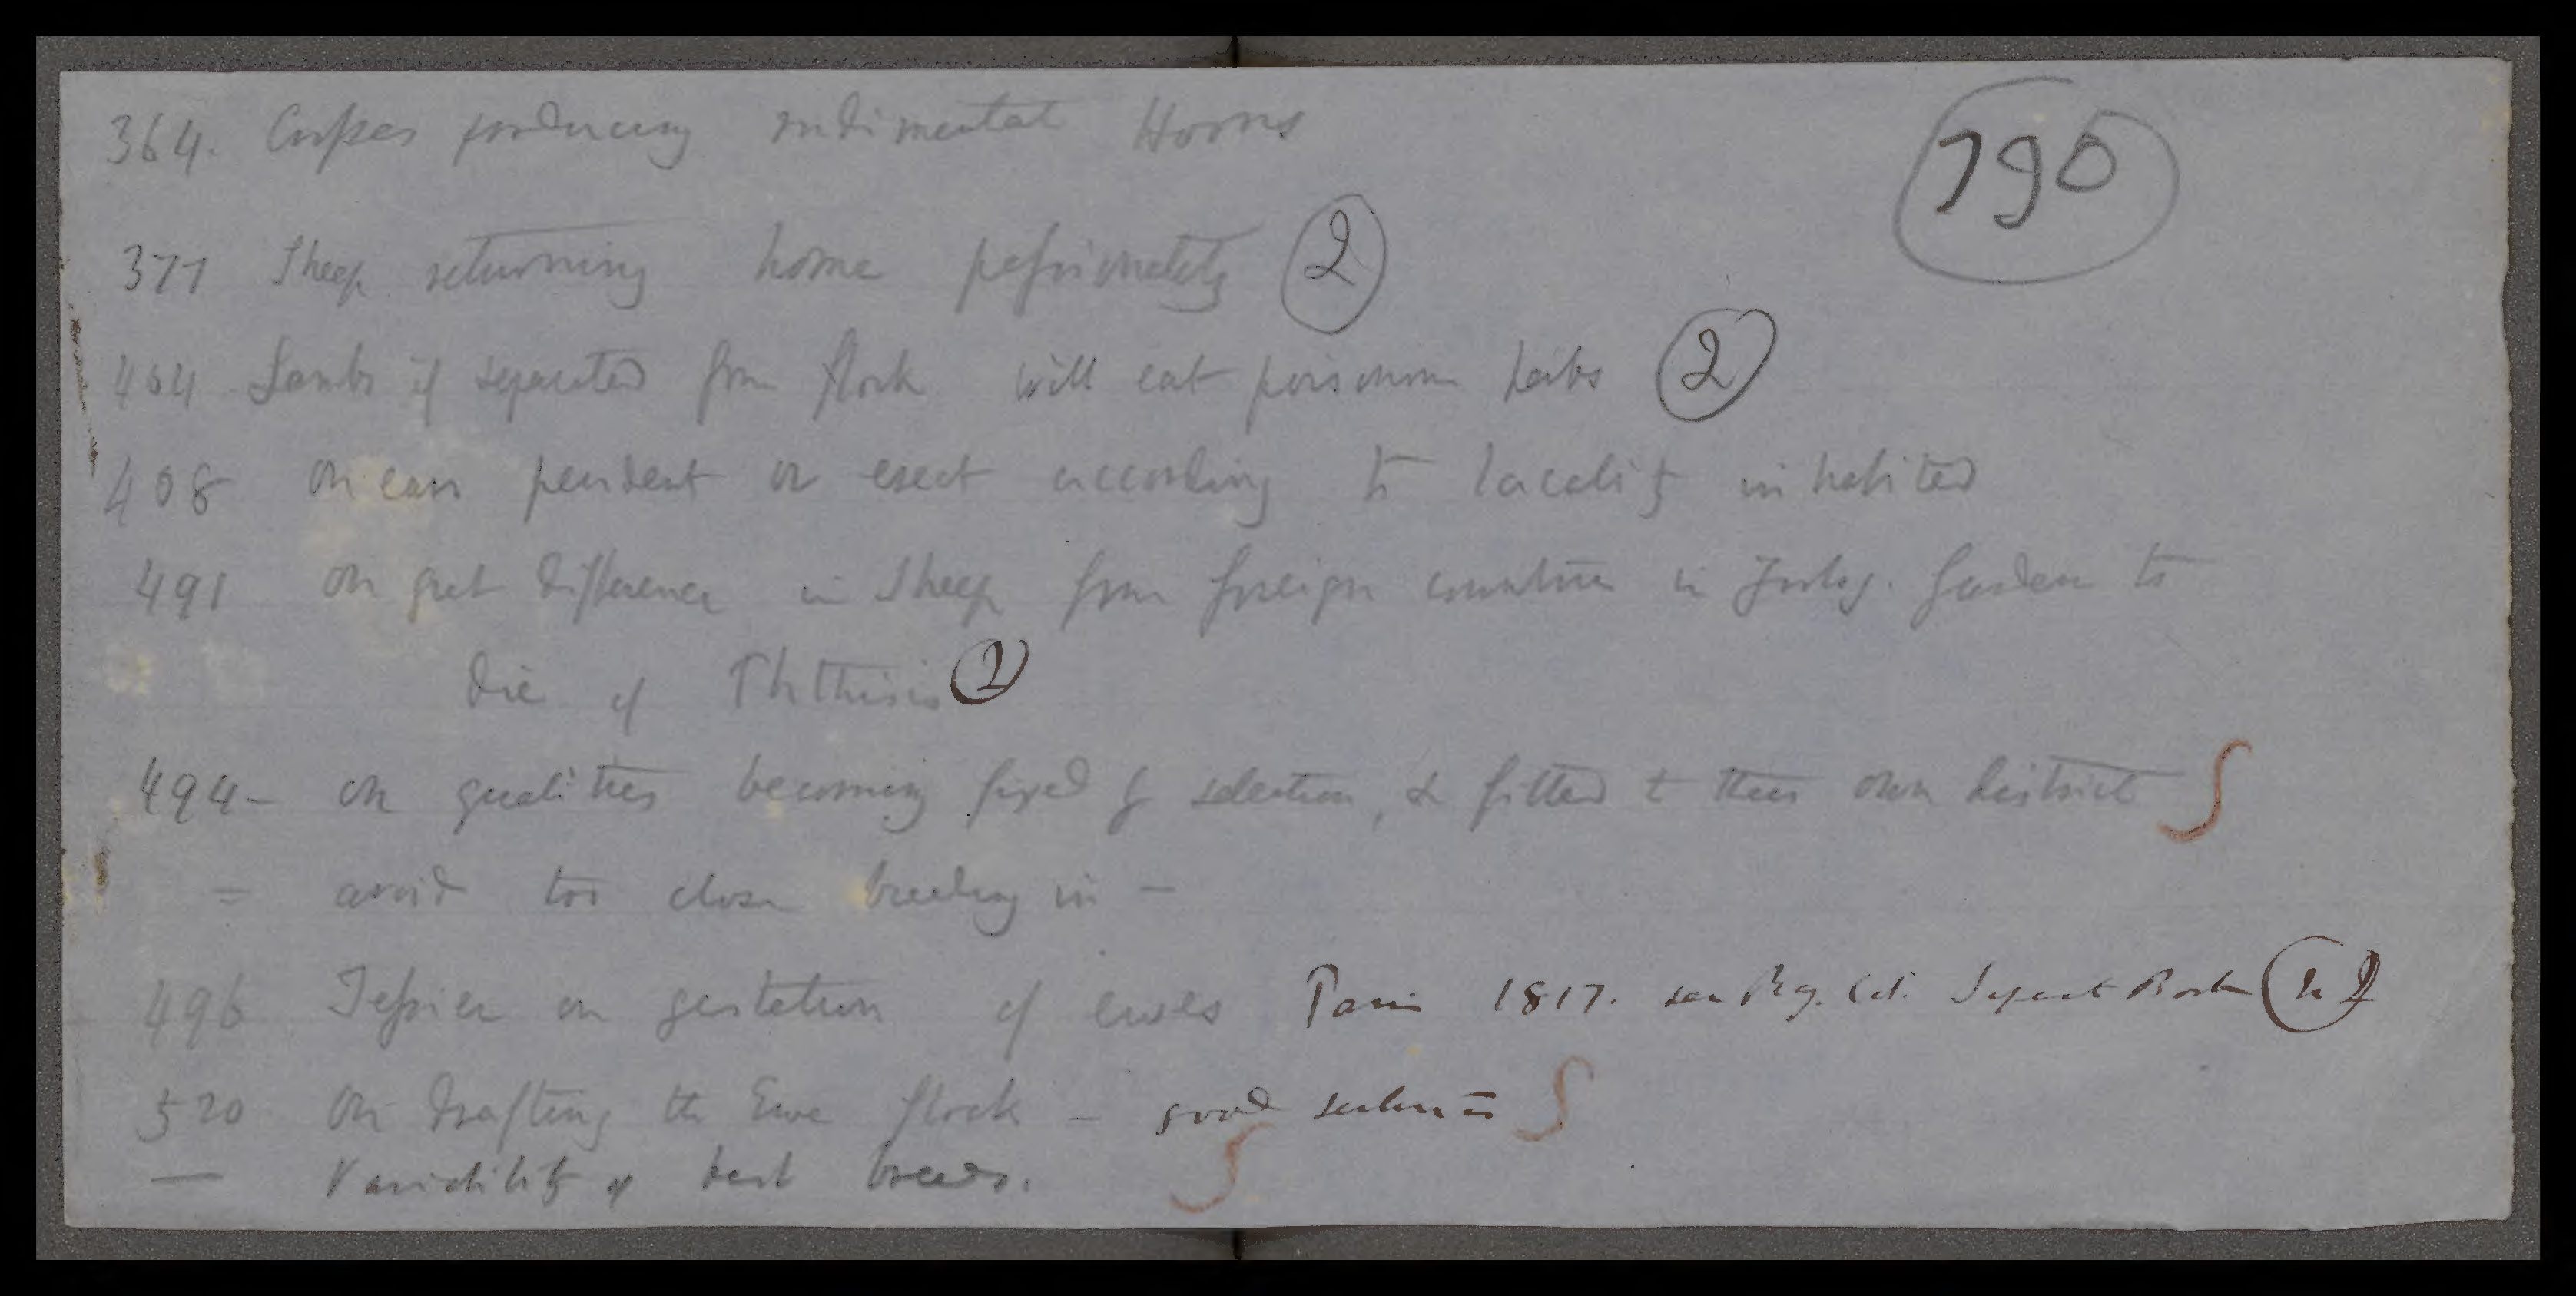 364. Crosses producing rudimental Horns
190
377 Sheep returning home passionately (2)
404 Lambs if separated from flock will eat poisonous herbs (2)
408 on ears pendent or erect according to locality inhabited
491 on great difference in sheep from foreign countries in Zoolog. Garden to
die of Phthisis (2)
494 – on qualities becoming fixed by selection, & fitted to their own district
= avoid too close breeding in –
496 Tessier on gestation of ewes Paris 1817. see
520 On drafting the Ewe flock – good selection
— Variability of best breeds.